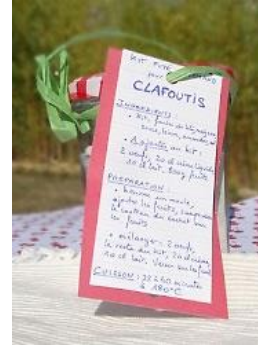 KIT
pour
CLAFOUTIS
INGREDIENTS :
sucre, levure, amandes
A ajouter au kit :
2 oeufs, 20 cl crème liquide,
10 cl lait, 300g fruits
PREPARATION :
beurrer un moule,
ajouter les fruits, saupoudrer
le sachet
les fruits
mélanger : 2 oeufs,
le reste du kit, 20 cl crème,
10 cl lait. Verser sur les fruits
CUISSON : 35 à 40 minutes
à 180°C